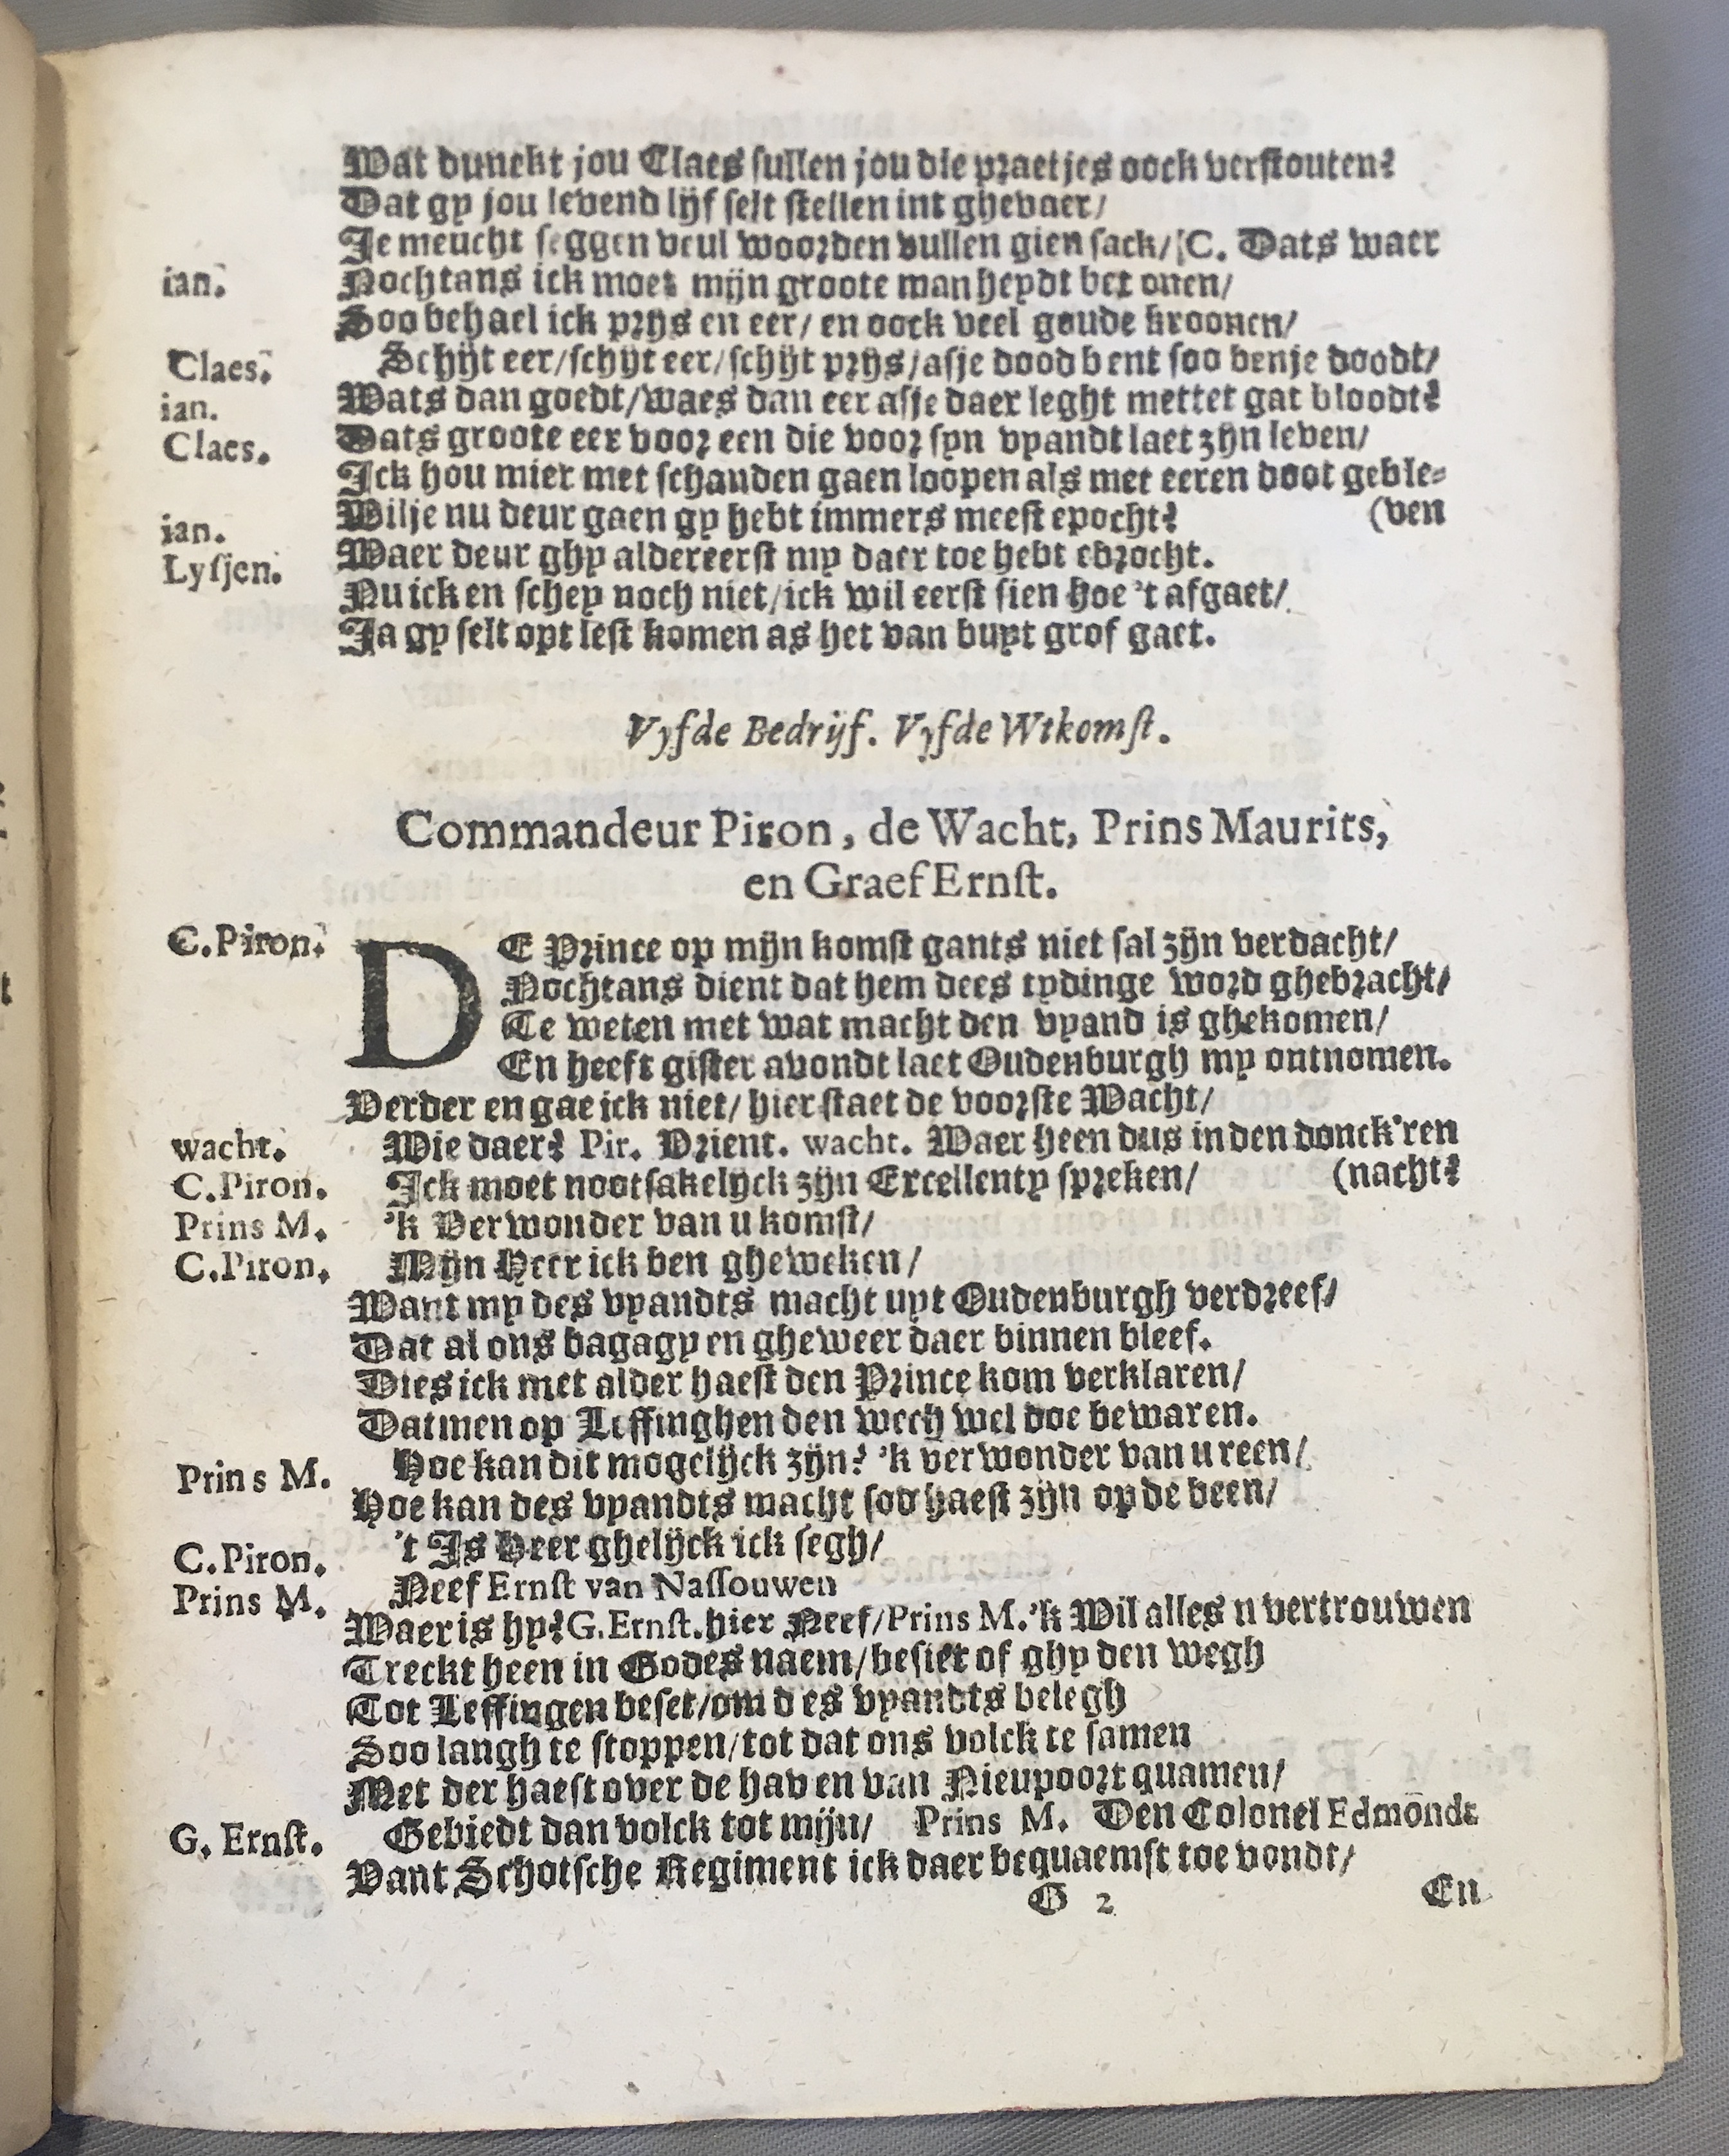 Wat dunckt jou Claes sullen jou die praetjes oock verstouten?
Dat gy jou levend lijf selt stellen int ghevaer/
Je meucht seggen veul woorden vullen gien sack/ C. Dats waer
ian. Nochtans ick moet mijn groote manheydt betoonen/
Soo behael ick prijs en eer/ en oock veel goude kroonen/
Claes. Schijt eer/schijt eer/schijt prijs/asje dood bent soo benje doodt/
ian. Wats dan goedt/waes dan eer asje daer leght mettet gat bloodt?
Claes. Dats groote eer voor een die voor syn vyandt laet zijn leven/
Ick hou mier met schanden gaen loopen als met eeren doot geble-
ian. Wilje nu deur gaen gy hebt immers meest epocht? (ven
Lysjen. Waer deur ghy aldereerst my daer toe hebt ebrocht.
Nu ick en schey noch niet/ick wil eerst sien hoe 't afgaet/
Ja gy selt opt lest komen as het van buyt grof gaet.
Vyfde Bedrijf. Vyfde Wtkomst.
Commandeur Piron, de Wacht, Prins Maurits,
en Graef Ernst.
C. Piron. DE Prince op mijn komst gants niet sal zijn verdacht/
Nochtans dient dat hem dees tydinge word ghebracht/
Te weten met wat macht den vyand is ghekomen/
En heeft gister avondt laet Oudenburgh my ontnomen.
Verder en gae ick niet/ hier staet de voorste Wacht/
wacht. Wie daer? Pir. Vrient. wacht. Waer heen dus in den donck'ren
C. Piron. Ick moet nootsakelijck zijn Excellenty spreken/ (nacht?
Prins M. 'k Verwonder van u komst/
C. Piron. Mijn Heer ick ben gheweken/
Want my des vyandts macht uyt Oudenburgh verdreef/
Dat al ons bagagy en gheweer daer binnen bleef.
Dies ick met alder haest den Prince kom verklaren/
Datmen op Leffinghen den wech wel doe bewaren.
Prins M. Hoe kan dit mogelijck zijn? 'k verwonder van u reen/
Hoe kan des vyandts macht soo haest zijn op de been/
C. Piron. 't Is Heer ghelijck ick segh/
Prins M. Neef Ernst van Nassouwen
Waer is hy? G. Ernst. hier Neef/ Prins M. 'k Wil alles u vertrouwen
Treckt heen in Godes naem/besiet of ghy den wegh
Tot Leffingen beset/om des vyandts belegh
Soo langh te stoppen/tot dat ons volck te samen
Met der haest over de haven van Nieupoort quamen/
G. Ernst. Gebiedt dan volck tot mijn/ Prins M. Den Colonel Edmondt
Vant Schotsche Regiment ick daer bequaemst toe vondt/
G 2 En